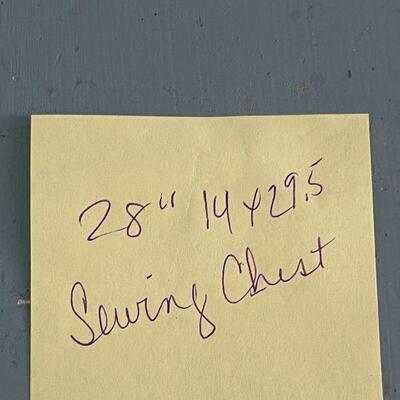 28" 14x29.5
Sewing Chest